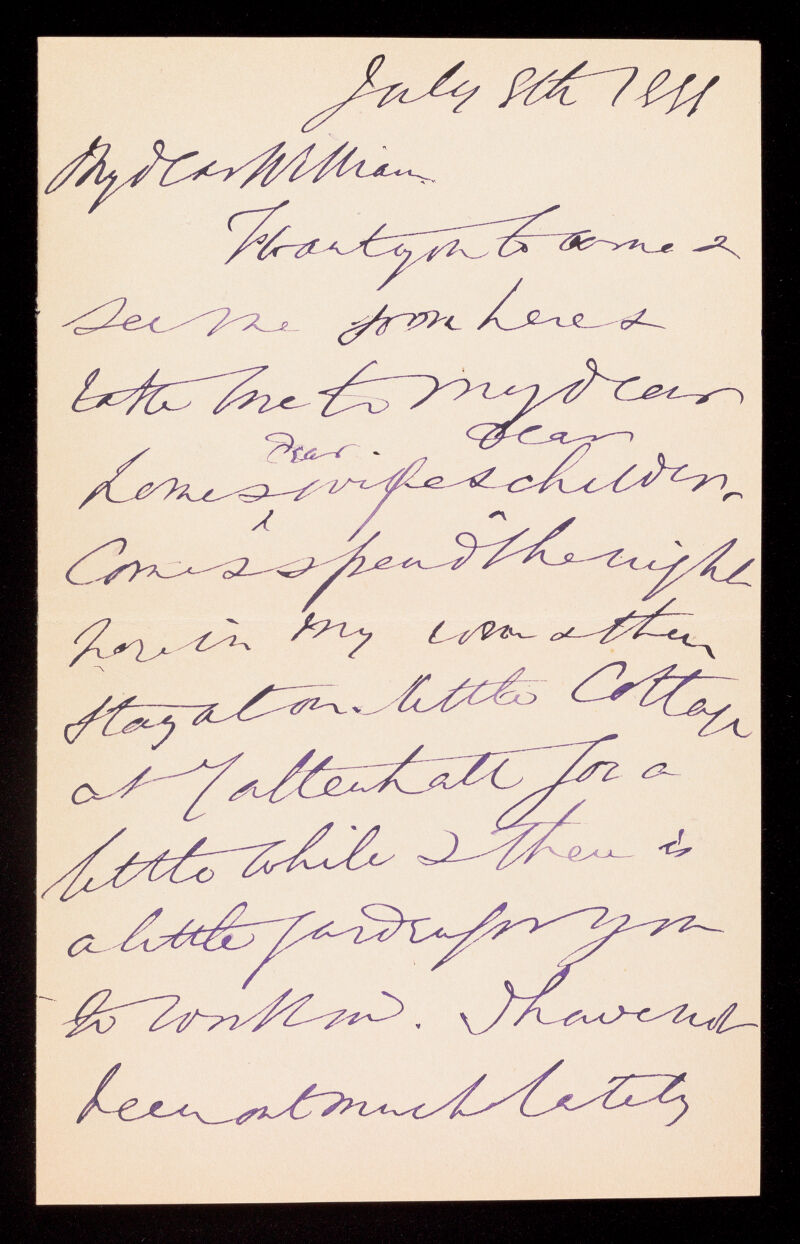 July 8th 1891
My dear William
I want you to come &
see me soon here &
take me to my dear
dear dear
home & wife & children,
Come & spend the night
here in my room & then
stay at our little Cottage
at Tattenhall for a
little while & there is
a little garden for you
to work in. I have not
been out much lately